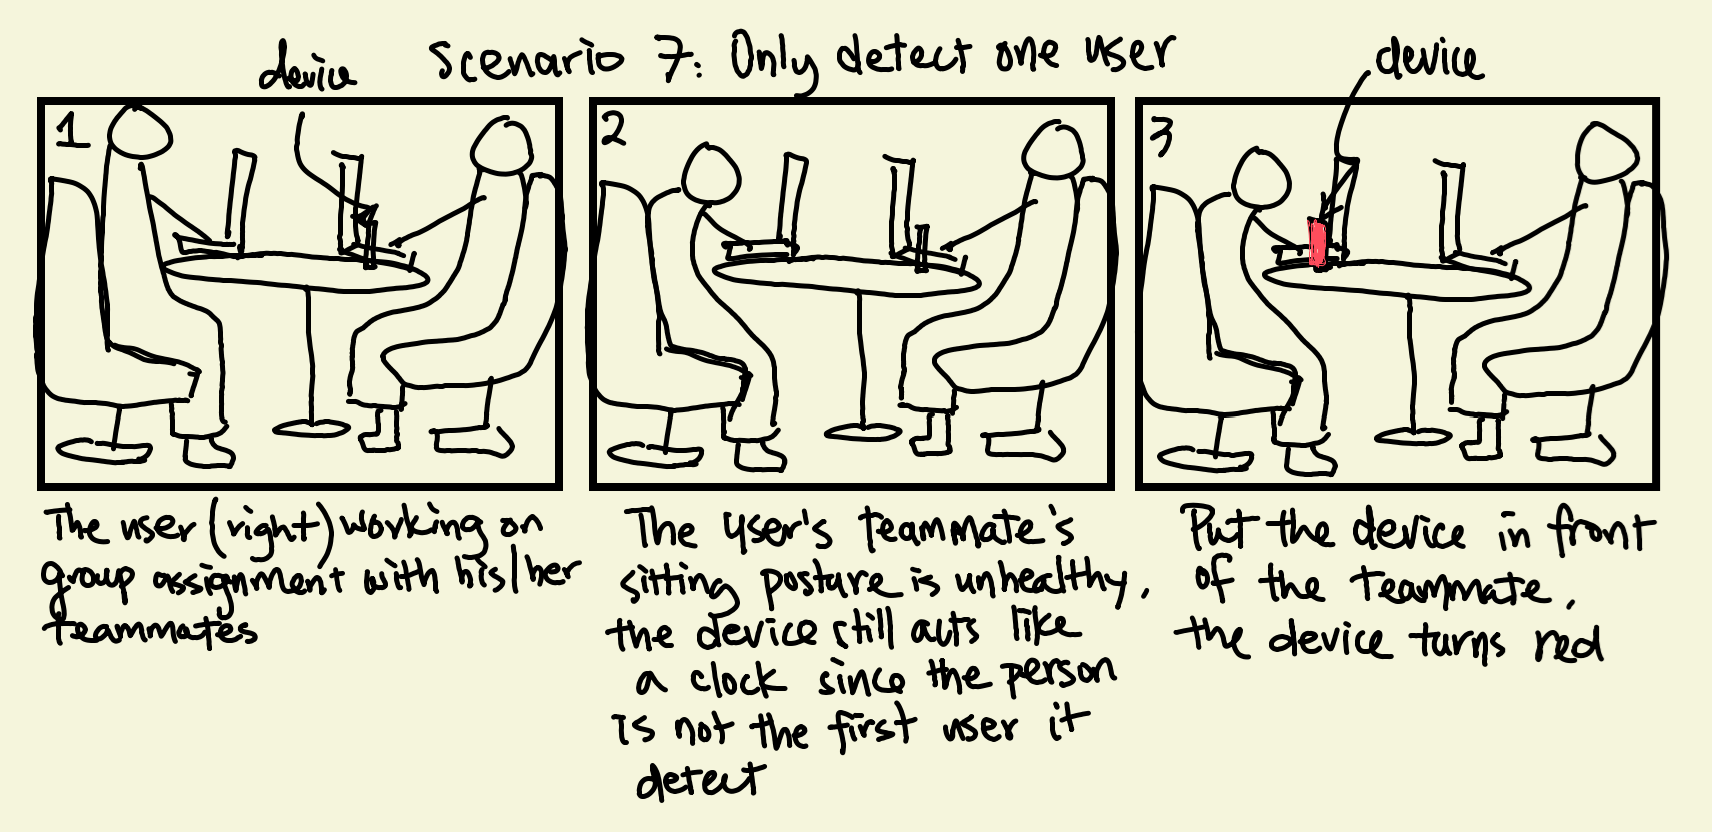 Scenario 7: Only detect one user
device
device
1
The user (right) working on
group assignment with his/her
teammates
2
The user's teammate's
sitting posture is unhealthy,
the device still acts like
a clock since the person
is not the first user it
detect
3
Put the device in front
of the teammate,
the device turns red